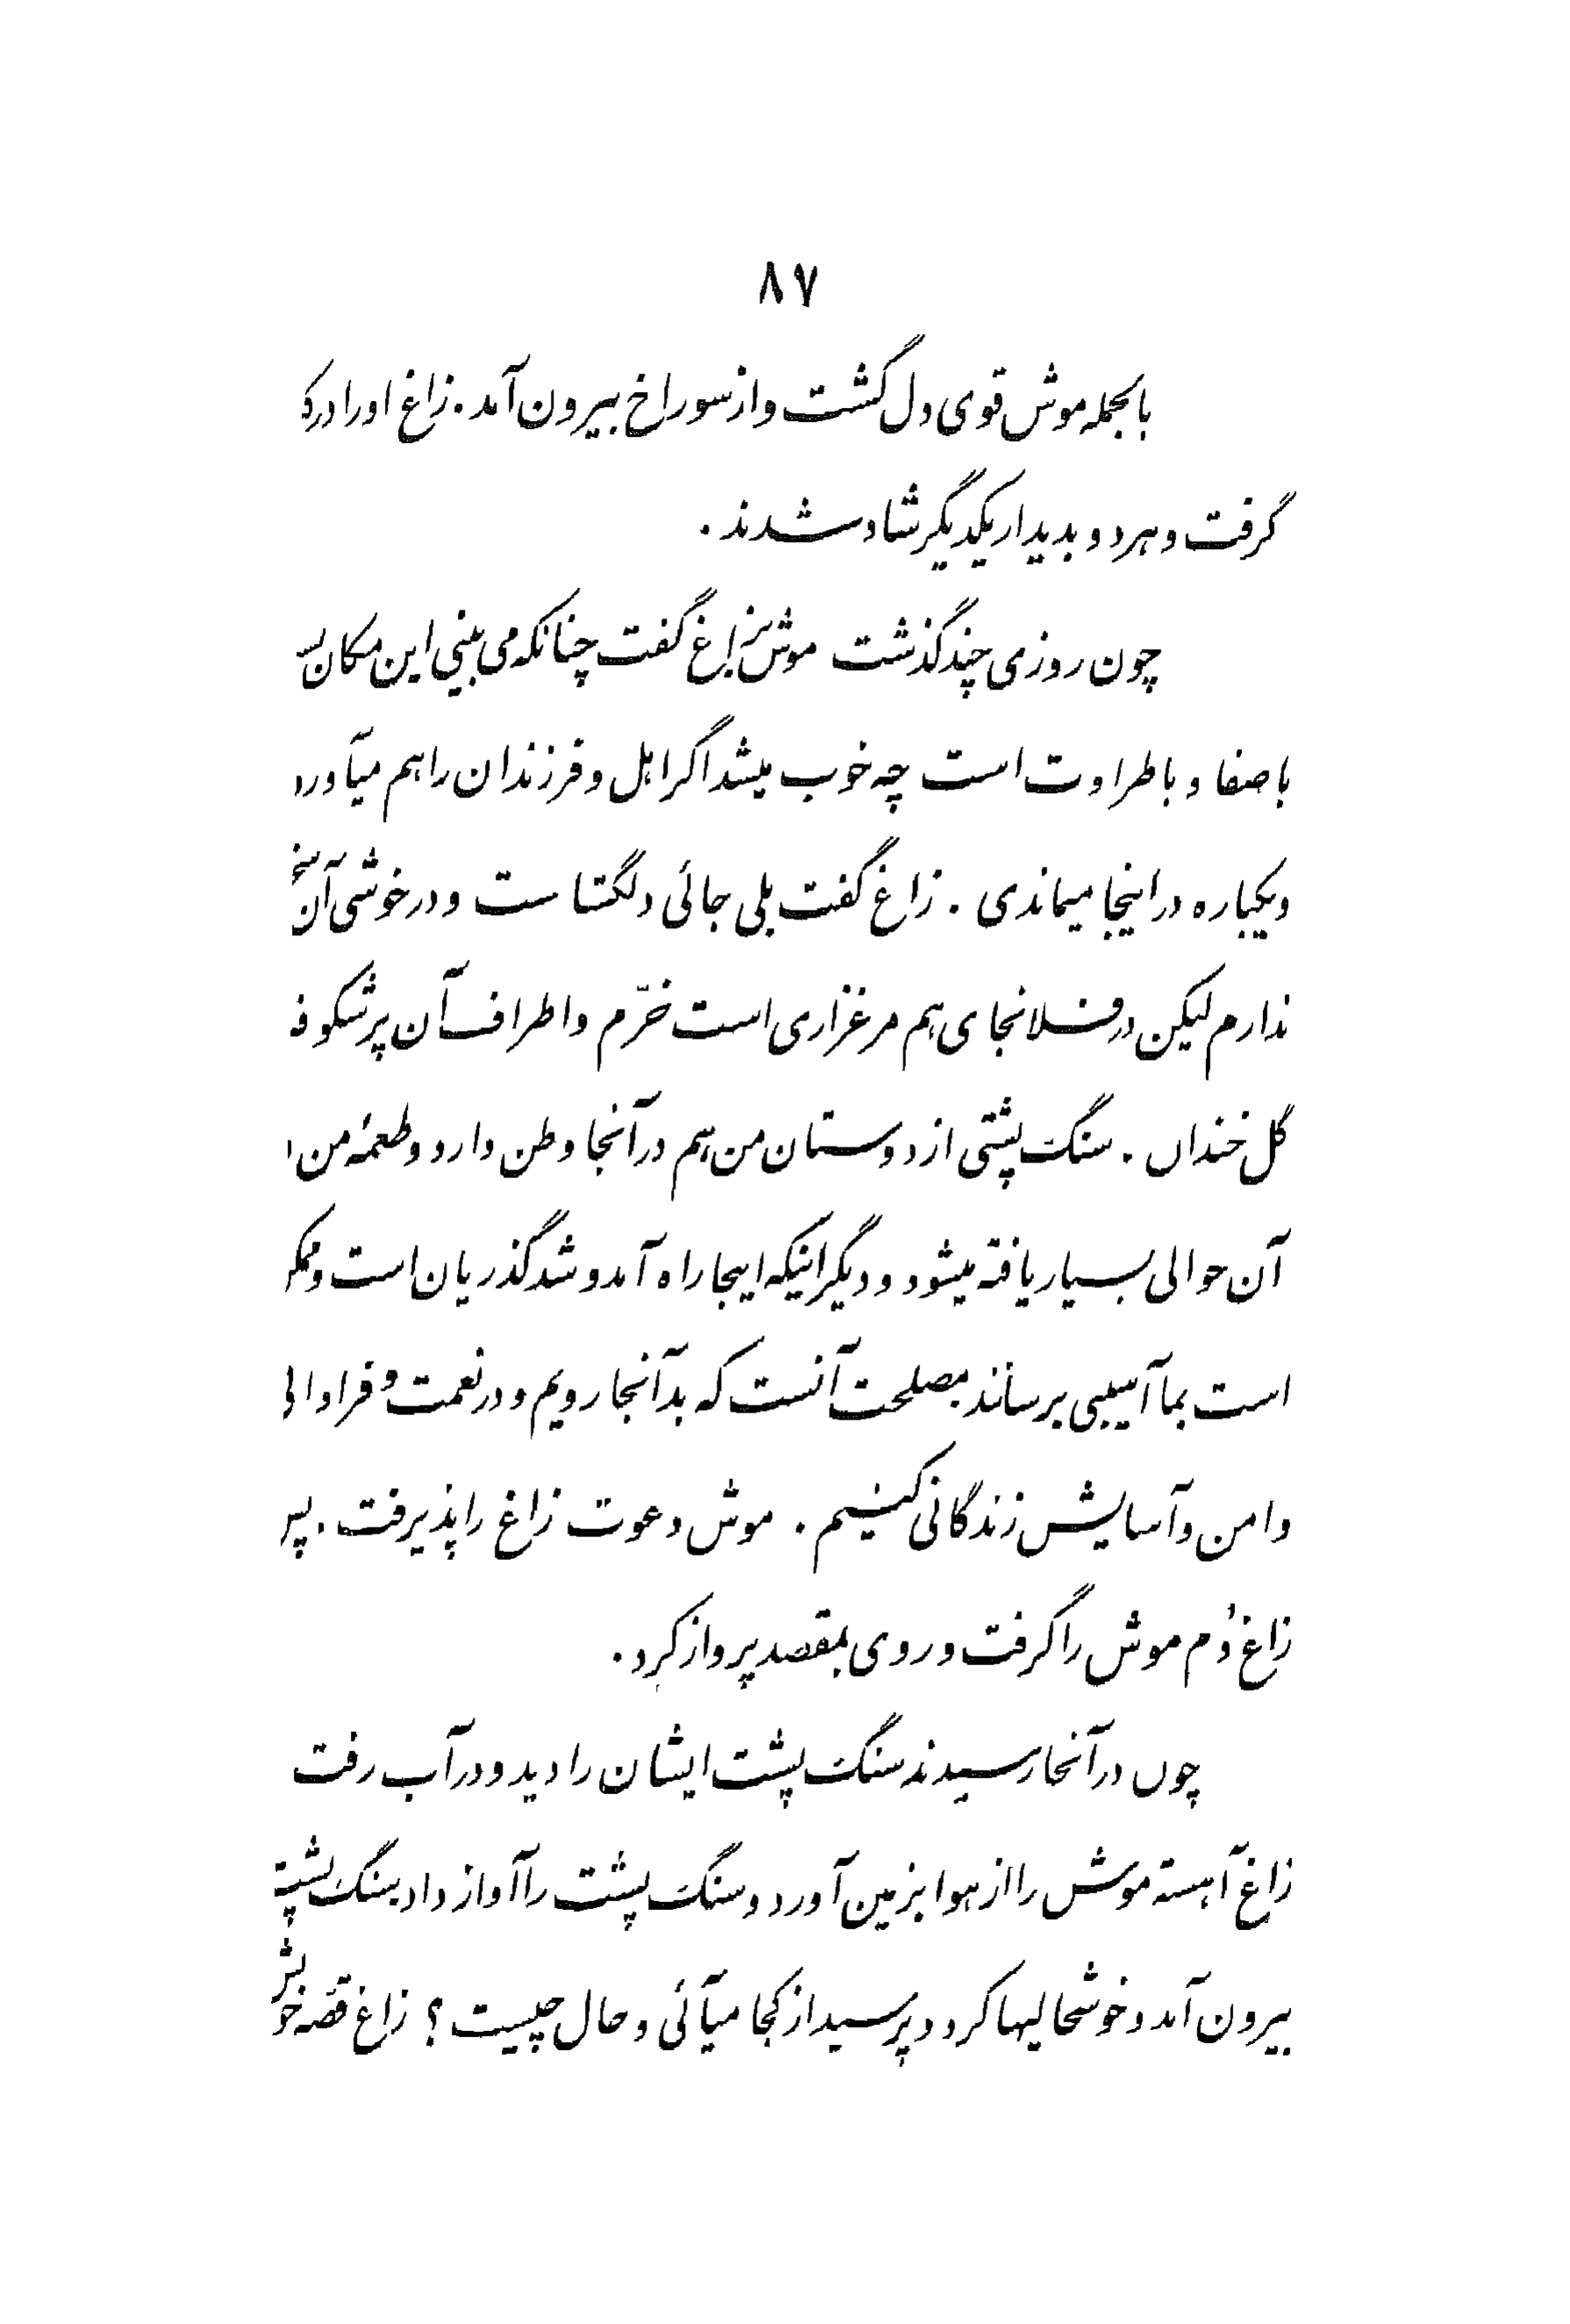 ۸۷
بالجمله موش قوی دل گشت و از سوراخ بیرون آمد. زاغ او را در
گرفت و هر دو بدیدار یکدیگر شاد شدند.
چون روزی چند گذشت موش بزاغ گفت چنانکه می بینی این مکان
با صفا و با طراوت است چه خوب میشد اگر اهل و فرزندان را هم میآورد
و یکباره در اینجا میماندی. زاغ گفت بلی جائی دلگشا ست و در خوشی آن
ندارم لیکن در فلانجای هم مرغزاری است خرّم و اطراف آن پر شکوفه
گل خندان. سنگ پشتی از دوستان من هم در آنجا وطن دارد و طعمهٔ من
آن حوالی بسیار یافته میشود و دیگر اینکه اینجا راه آمد و شد گذریان است و
است بما آسیبی برسانند مصلحت آنست که بدآنجا رویم و در نعمت و فراوانی
و امن و آسایش زندگانی کنیم. موش دعوت زاغ را پذیرفت.
زاغ دُم موش را گرفت و روی بمقصد پرواز کرد.
چون در آنجا رسیدند سنگ پشت ایشان را دید و در آب رفت
زاغ آهسته موش را از هوا بزمین آورد و سنگ پشت را آواز داد سنگ پشت
بیرون آمد و خوشحالیها کرد و پرسید از کجا میآئی و حال چیست؟ زاغ قصّه خویش